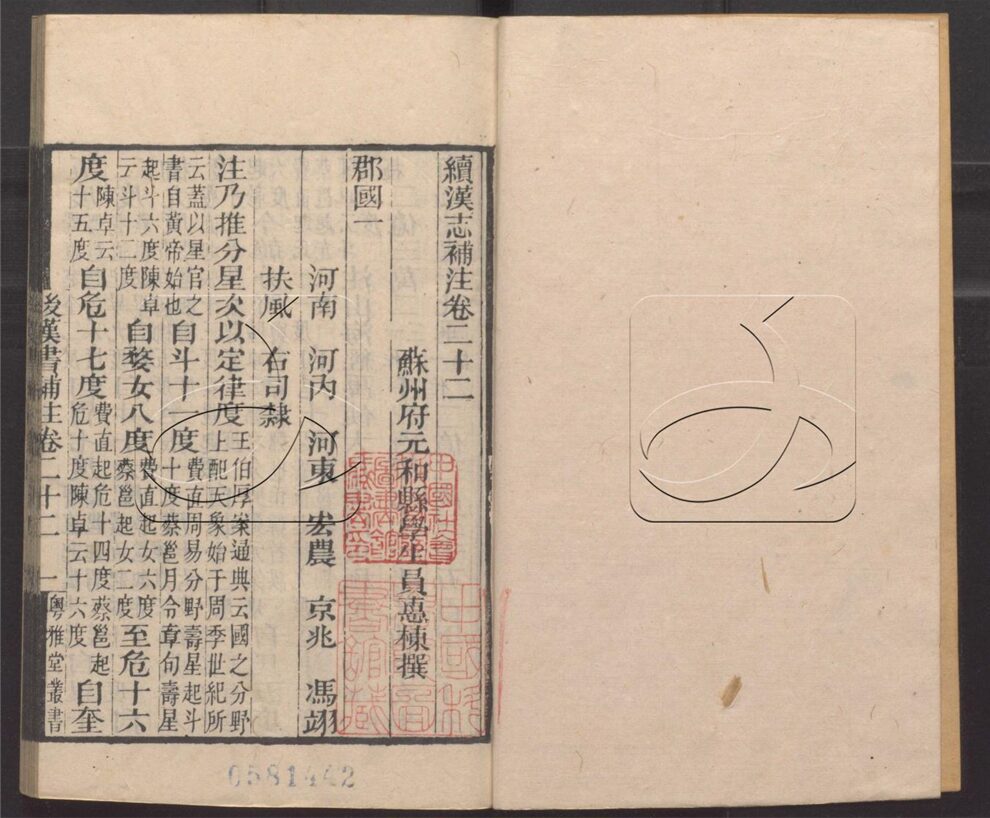 續漢志補注卷二十二
蘇州府元和縣學生員惠棟撰
郡國一
河南 河內 河東 宏農 京兆 馮翊
扶風 右司隸
注乃推分星次以定律度王伯厚案通典云國之分野上配天象始于周季世紀所
云蓋以星官之書自黃帝始也自斗十一度費直周易分野壽星起斗十度蔡邕月令章句壽星
起斗六度陳卓云斗十二度自婺女八度費直起女六度蔡邕起女二度至危十六
度陳卓云十五度自危十七度費直起危十四度蔡邕起危十度陳卓云十六度自奎
後漢書補注卷二十二 一 粵雅堂叢書
0581442